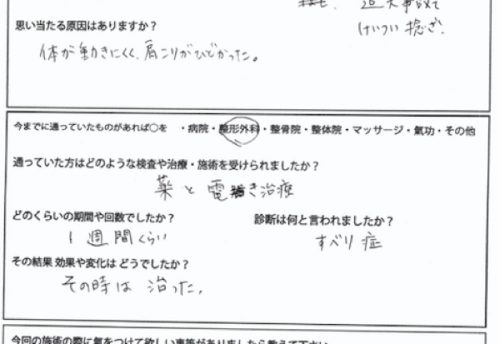 追大事故で
思い当たる原因はありますか？
けいつい捻ざ
体が動きにくく、肩こりがひどかった。
今までに通っていたものがあれば○を ・病院・整形外科・整骨院・整体院・マッサージ・氣功・その他
通っていた方はどのような検査や治療・施術を受けられましたか？
薬と電き治療
どのくらいの期間や回数でしたか？ 診断は何と言われましたか？
1週間くらい すべり症
その結果 効果や変化は どうでしたか？
その時は 治った。
今回の施術の際に氣をつけて欲しい事等がありましたら教えて下さい